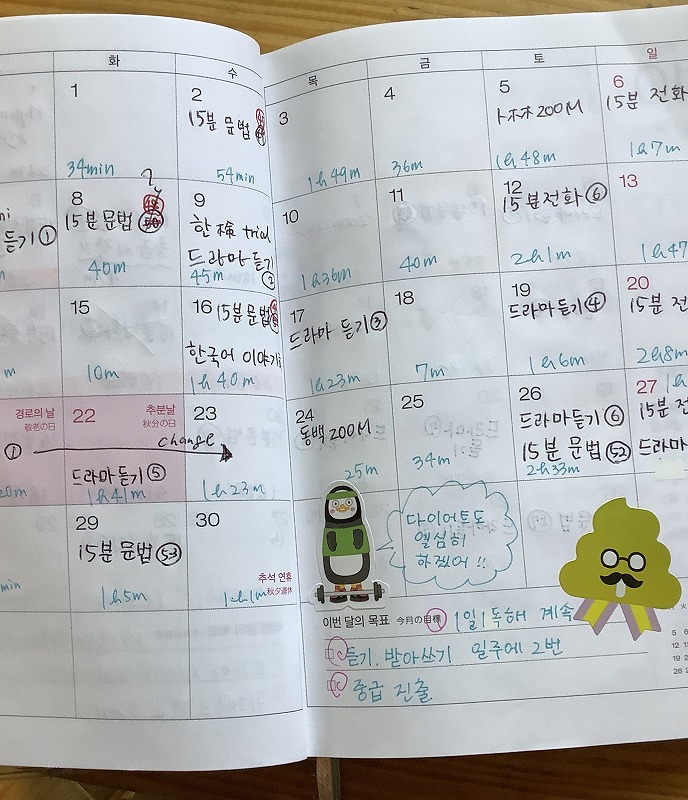 화 수 목 금 토 일
1
34min
2
15분 문법
54min
3
1h49m
4
36m
5
トホホ 200M
1h48m
6
15분 전화
1h7m
듣기①
8
15분 문법
40m
9
한検 trial
드라마 듣기
45m ②
10
1h36m
11
40m
12
15분전화⑥
2h1m
13
1h47
m
15
10m
16 15분 문법
한국어 이야기
1h40m
17
드라마 듣기③
1h23m
18
7m
19
드라마듣기④
1h6m
20
15분 전
2h8m
경로의 날
敬老の日
①
20m
22 추분날
秋分の日
드라마듣기⑤
1h41m
23
change
1h23m
24
동백 200M
25m
25
34m
26
드라마듣기⑥
15분 문법 52
2h33m
27
15분 전
드라마
min
29
15분 문법 53
1h5m
30
추석 연휴
秋夕連休
1h1m
다이어트도
열심히
하겠어!!
이번 달의 목표 今月の目標 1일1독해 계속
듣기. 받아쓰기 일주에 2번
중급 진출